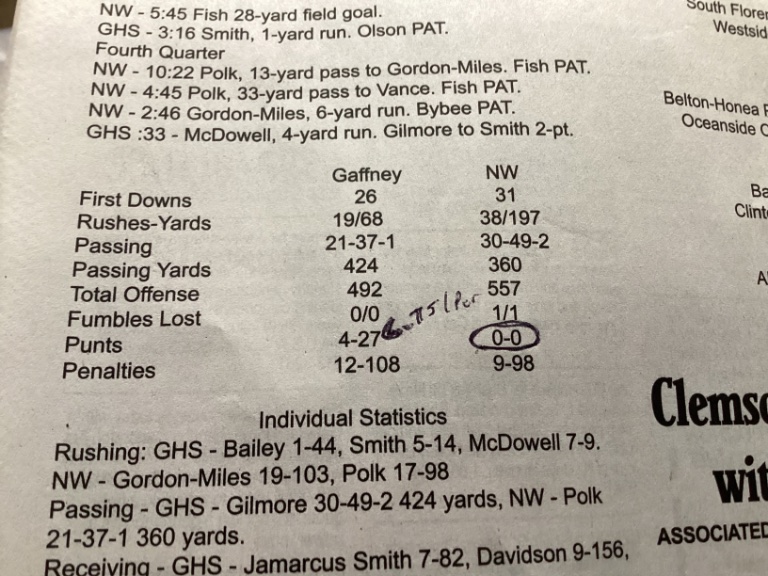 NW - 5:45 Fish 28-yard field goal.
GHS - 3:16 Smith, 1-yard run. Olson PAT.
Fourth Quarter
NW - 10:22 Polk, 13-yard pass to Gordon-Miles. Fish PAT.
NW - 4:45 Polk, 33-yard pass to Vance. Fish PAT.
NW - 2:46 Gordon-Miles, 6-yard run. Bybee PAT.
GHS :33 - McDowell, 4-yard run. Gilmore to Smith 2-pt.
Gaffney NW
First Downs 26 31
Rushes-Yards 19/68 38/197
Passing 21-37-1 30-49-2
Passing Yards 424 360
Total Offense 492 557
Fumbles Lost 0/0 1/1
Punts 4-27 0-0
Penalties 12-108 9-98
Individual Statistics
Rushing: GHS - Bailey 1-44, Smith 5-14, McDowell 7-9.
NW - Gordon-Miles 19-103, Polk 17-98
Passing - GHS - Gilmore 30-49-2 424 yards, NW - Polk
21-37-1 360 yards.
Receiving - GHS - Jamarcus Smith 7-82, Davidson 9-156,
South Florer
Westsid
Belton-Honea
Oceanside C
Ba
Clint
A
Clemso
wit
ASSOCIATED